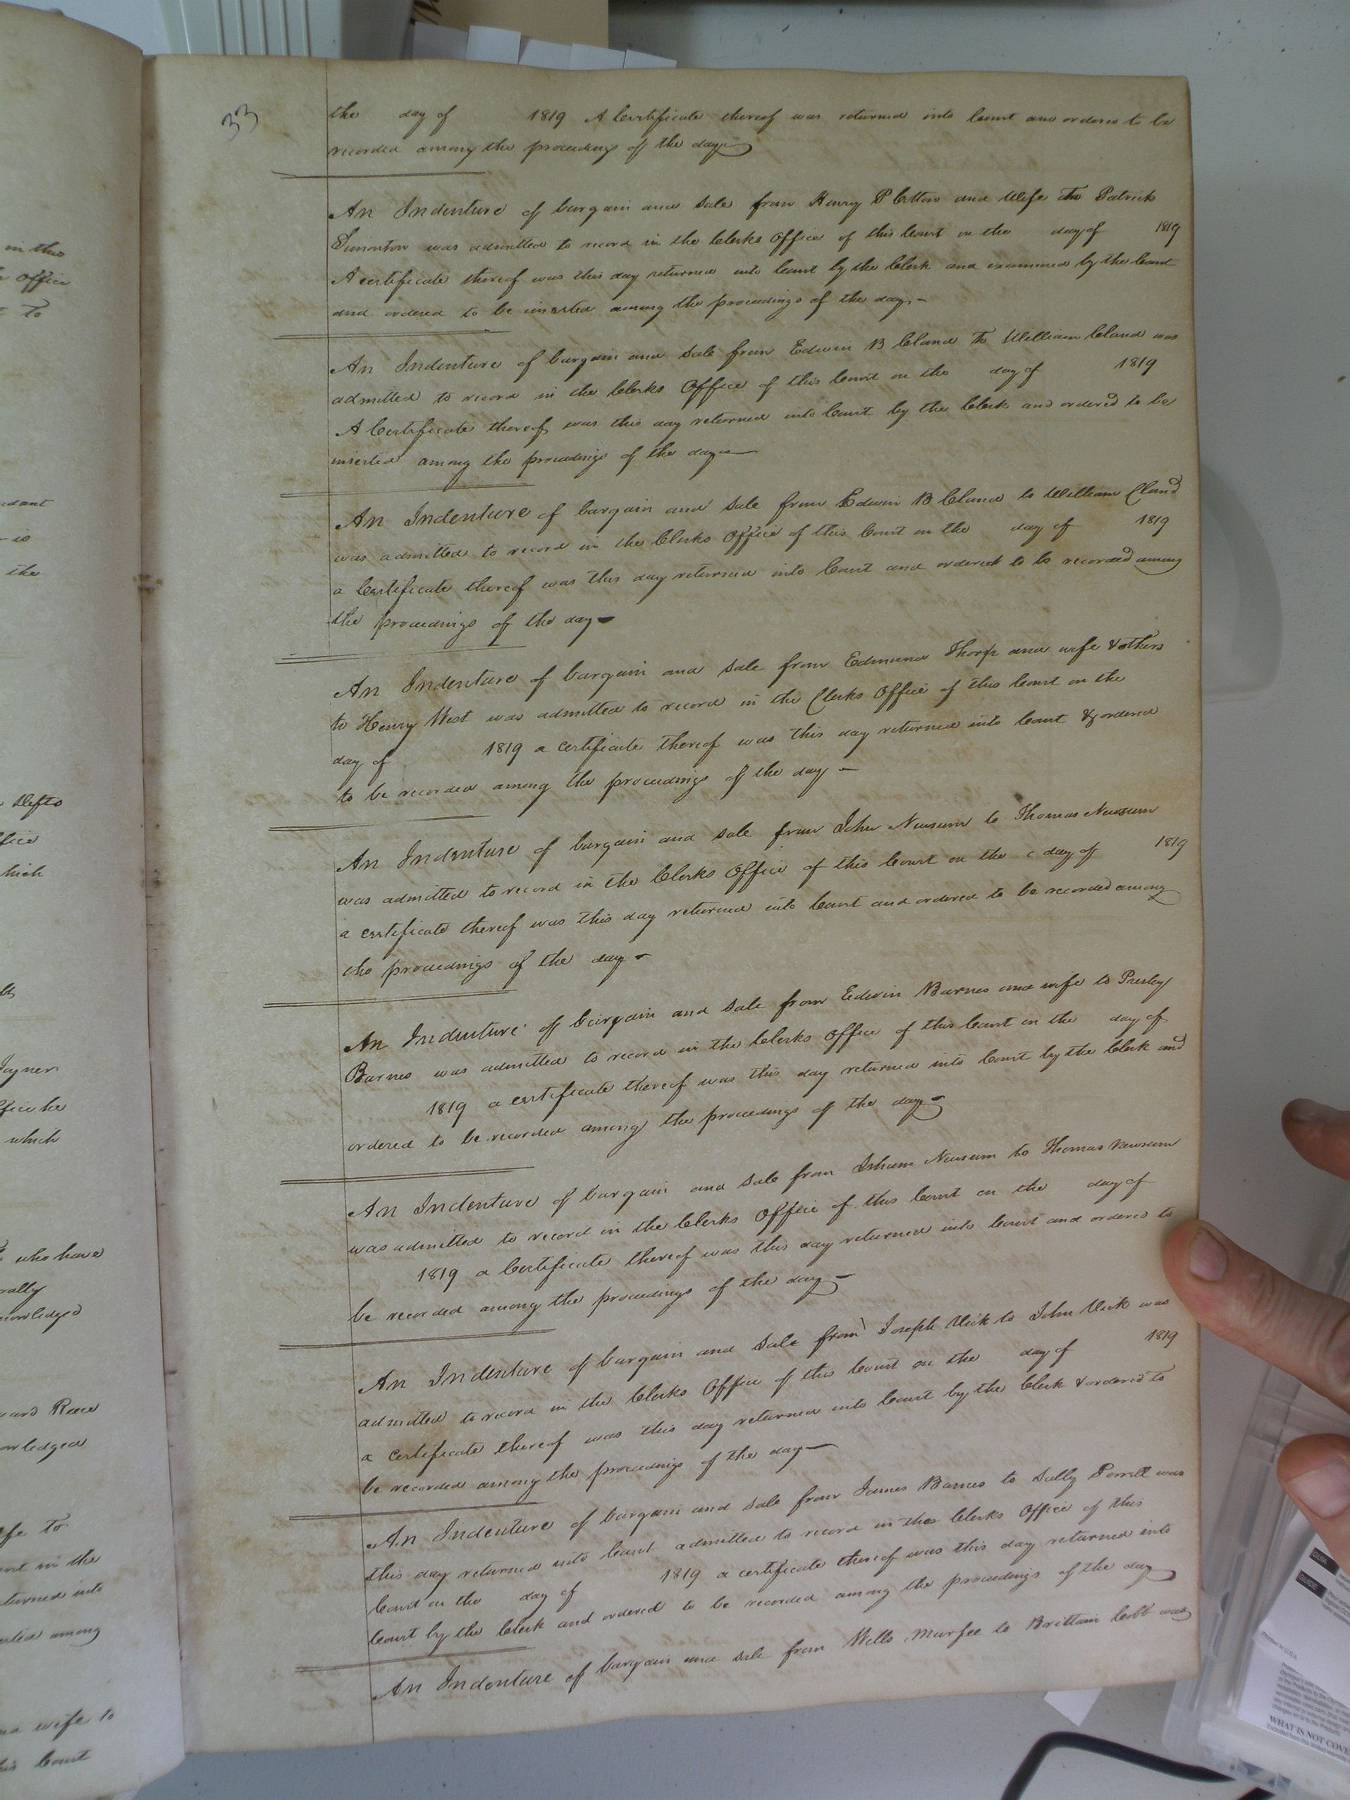 33
the day of 1819 A Certificate thereof was returned into Court and ordered to be
recorded among the proceedings of the day
An Indenture of bargain and Sale from Henry P Cotton and Wife To Patrick
Simonton was admitted to record in the Clerks Office of this Court on the day of 1819
A certificate thereof was this day returned into Court by the Clerk and examined by the Court
and ordered to be inserted among the proceedings of the day.
An Indenture of bargain and Sale from Edwin B Cland To William Cland was
admitted to record in the Clerks Office of this Court on the day of 1819
A Certificate thereof was this day returned into Court by the Clerk and ordered to be
inserted among the proceedings of the day
An Indenture of bargain and Sale from Edwin B Cland to William Cland
was admitted to record in the Clerks Office of this Court on the day of 1819
a Certificate thereof was this day returned into Court and ordered to be recorded among
the proceedings of the day
An Indenture of bargain and Sale from Edmund Thorp and wife & others
to Henry West was admitted to record in the Clerks Office of this Court on the
day of 1819 a certificate thereof was this day returned into Court & ordered
to be recorded among the proceedings of the day
An Indenture of bargain and Sale from John Newsum to Thomas Newsum
was admitted to record in the Clerks Office of this Court on the day of 1819
a certificate thereof was this day returned into Court and ordered to be recorded among
the proceedings of the day
An Indenture of bargain and Sale from Edwin Barnes and wife to Presley
Barnes was admitted to record in the Clerks Office of this Court on the day of
1819 a certificate thereof was this day returned into Court by the Clerk and
ordered to be recorded among the proceedings of the day
An Indenture of bargain and Sale from Isham Newsum to Thomas Newsum
was admitted to record in the Clerks Office of this Court on the day of
1819 a Certificate thereof was this day returned into Court and ordered to
be recorded among the proceedings of the day
An Indenture of bargain and Sale from Joseph Vick to John Vick was
admitted to record in the Clerks Office of this Court on the day of 1819
a certificate thereof was this day returned into Court by the Clerk & ordered to
be recorded among the proceedings of the day
An Indenture of bargain and Sale from James Barnes to Sally Porrill was
this day returned into Court admitted to record in the Clerks Office of this
Court on the day of 1819 a certificate thereof was this day returned into
Court by the Clerk and ordered to be recorded among the proceedings of the day
An Indenture of bargain and Sale from Wills Murfee to Brittain Cobb was
in the
Office
To
the
Defts
which
who have
Reese
wife to
Court
WHAT IS NOT COVE